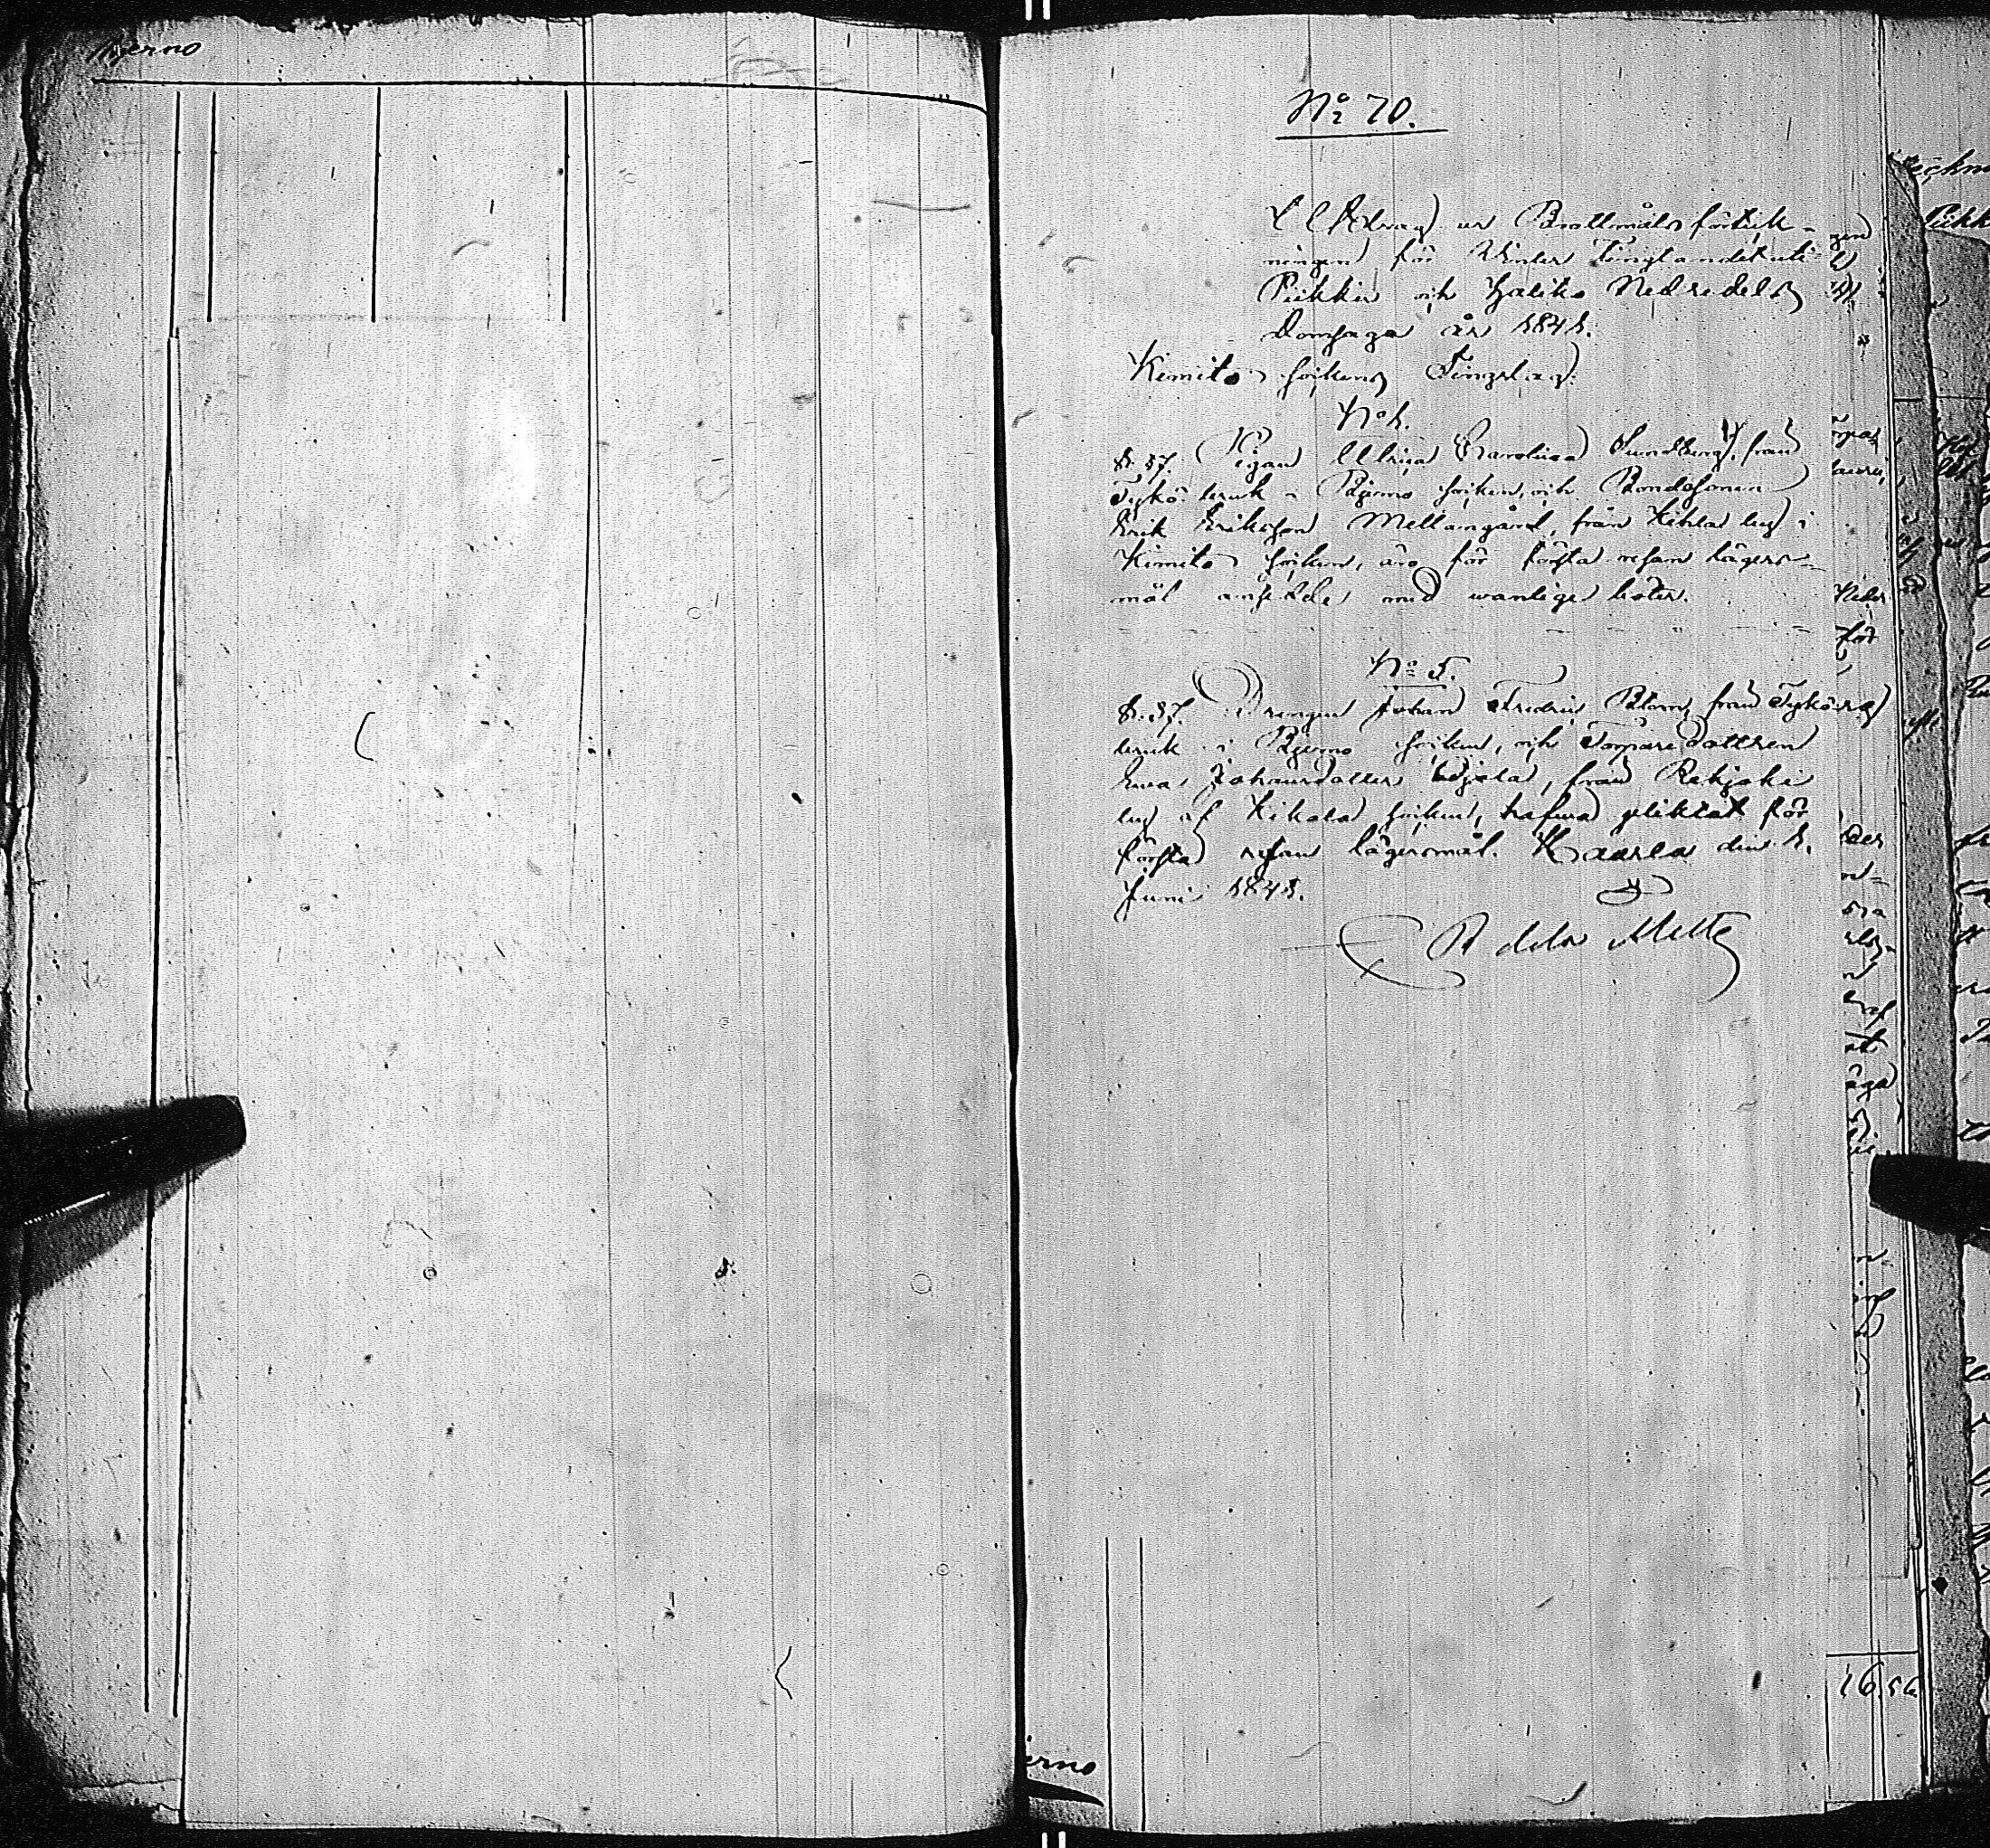 Bjerno
No 70.
Utdrag ur Brottmåls förtek-
ningen för Winter Tingtan di
Pikkis och Haliko Nedredels
Domsaga år 1841.
Kimito Sockens Tingslag.
No 1.
§. 37. Pigan Ulrica Carolina Sundberg, från
Tykö bruk i Bjerno socken, och Bondesonen
Erik Eriksson Mellangård, från by i
Kimito socken, äro för första resan lägers-
mål ansedde med wanlige böter.
No 5.
§. 37. Drengen Johan Fredric Blom, från Tykö
bruk i Bjerno socken, och Torparedottren
Ewa Johansdotter, från Rekijoki
by af Kikala socken, hafwa pliktat för
första resan lägersmål. Kaarla den 1.
Juni 1841.
R de la Motte
erno
16